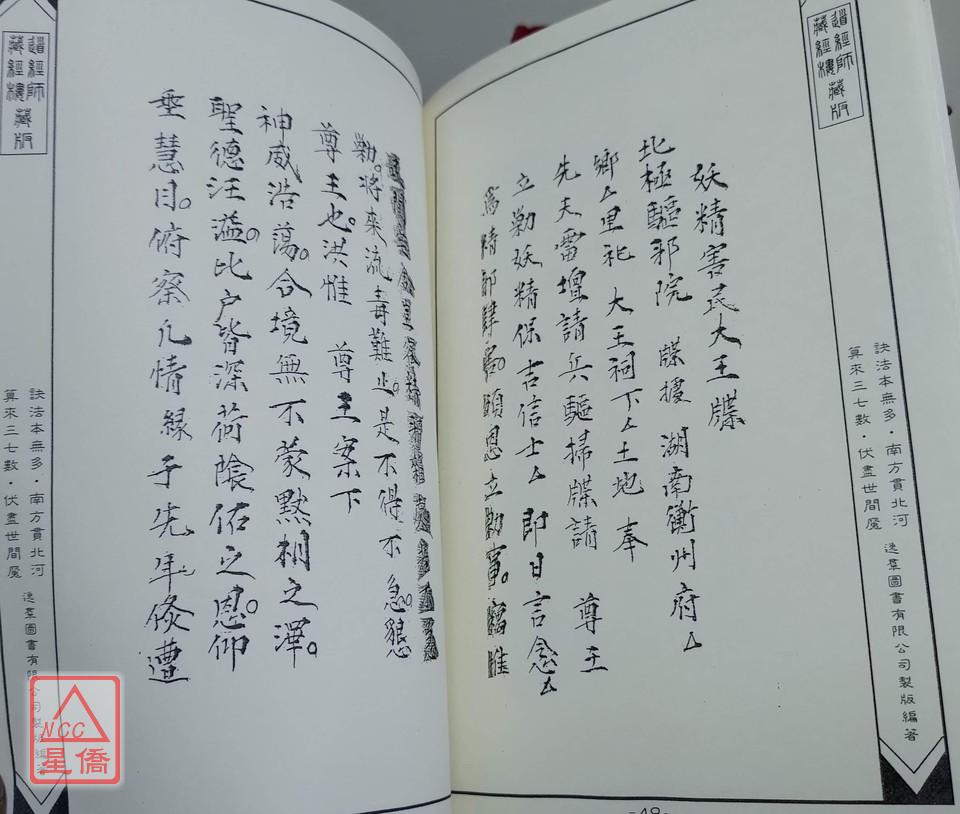 道經師
藏經樓藏版
訣法本無多・南方貫北河
算來三七數・伏盡世間魔
逸羣圖書有限公司製版編著
妖精害民大王牒
北極驅邪院 牒據 湖南衡州府厶
鄉厶里祀 大王祠下厶土地 奉
先夫雷壇請兵驅掃牒請 尊王
立勦妖精保吉信士厶 即日言念厶
為精邪肆
恩立勦事
惟
勦。將來流毒難止。是不得不急懇
尊王也。洪惟 尊王案下
神威浩蕩。合境無不蒙黙相之澤。
聖德汪溢。比户皆深荷陰佑之恩。仰
垂慧目。俯察凡情緣于先年倐遭
道經師
藏經樓藏版
訣法本無多・南方貫北河
算來三七數・伏盡世間魔
逸羣圖書有限公司製版編著
NCC
星僑